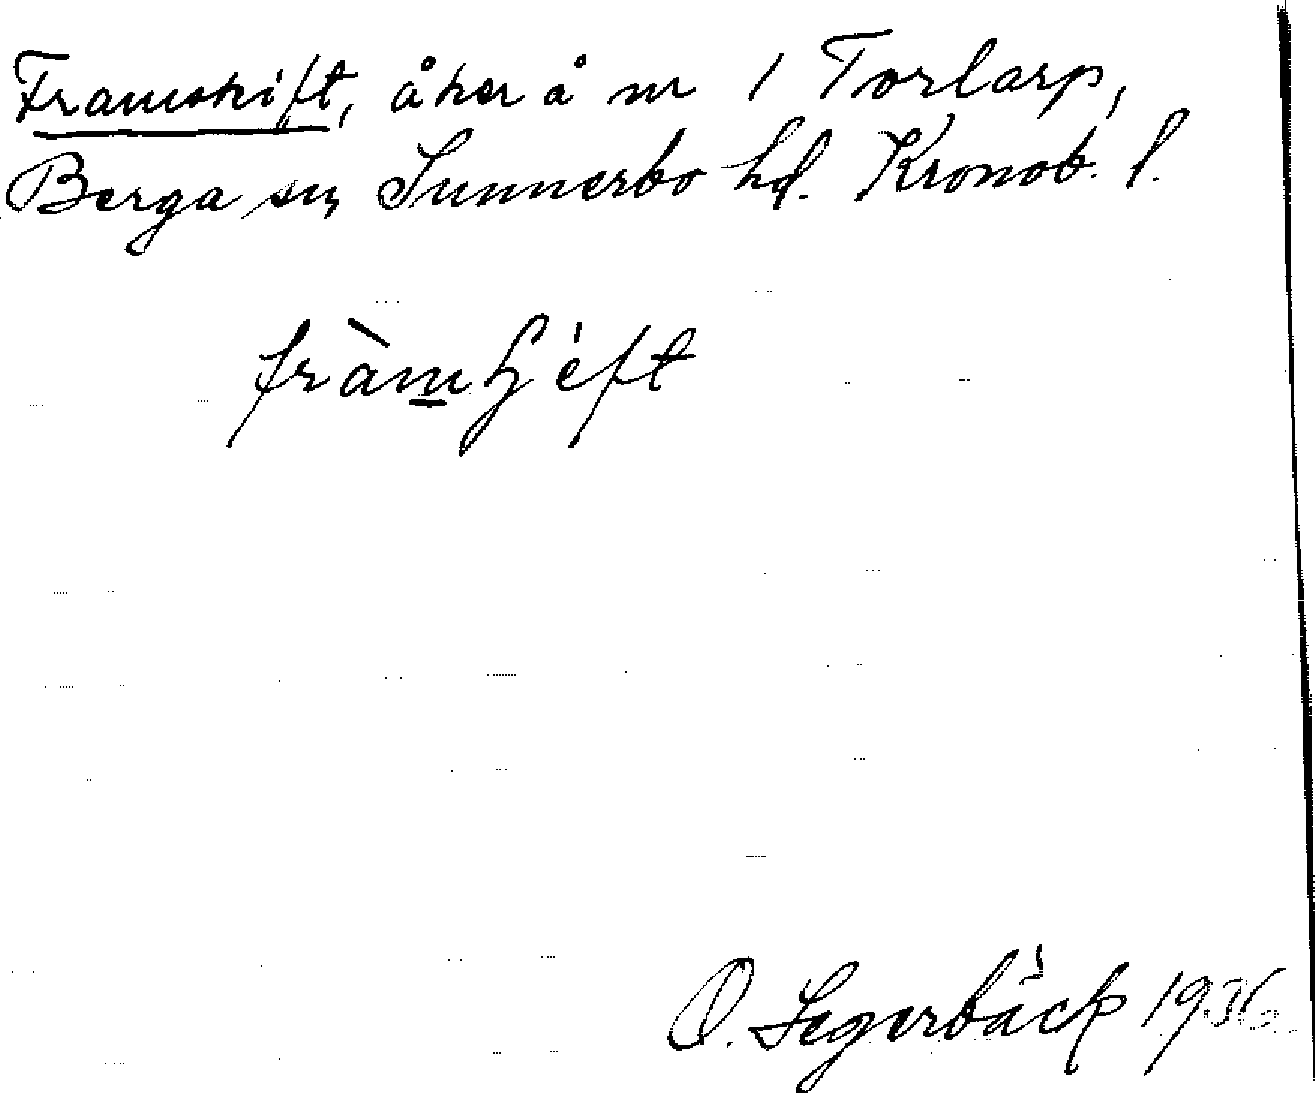 Framskift, åker å nr 1 Torlarp,
Berga sn, Sunnerbo hd. Kronob. l.
fràmʃift
O. Segerbäck 1936